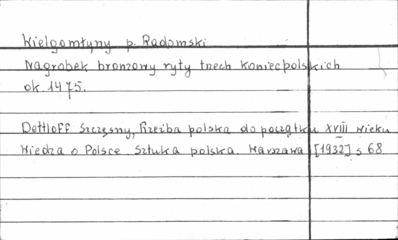 Wielgomłyny p. Radomski
Nagrobek bronzowy ryty trzech Koniecpolskich
ok. 1475.
Dettloff Szczęsny, Rzeźba polska do początku XVIII wieku
Wiedza o Polsce. Sztuka polska. Warszawa [1932] s 68.